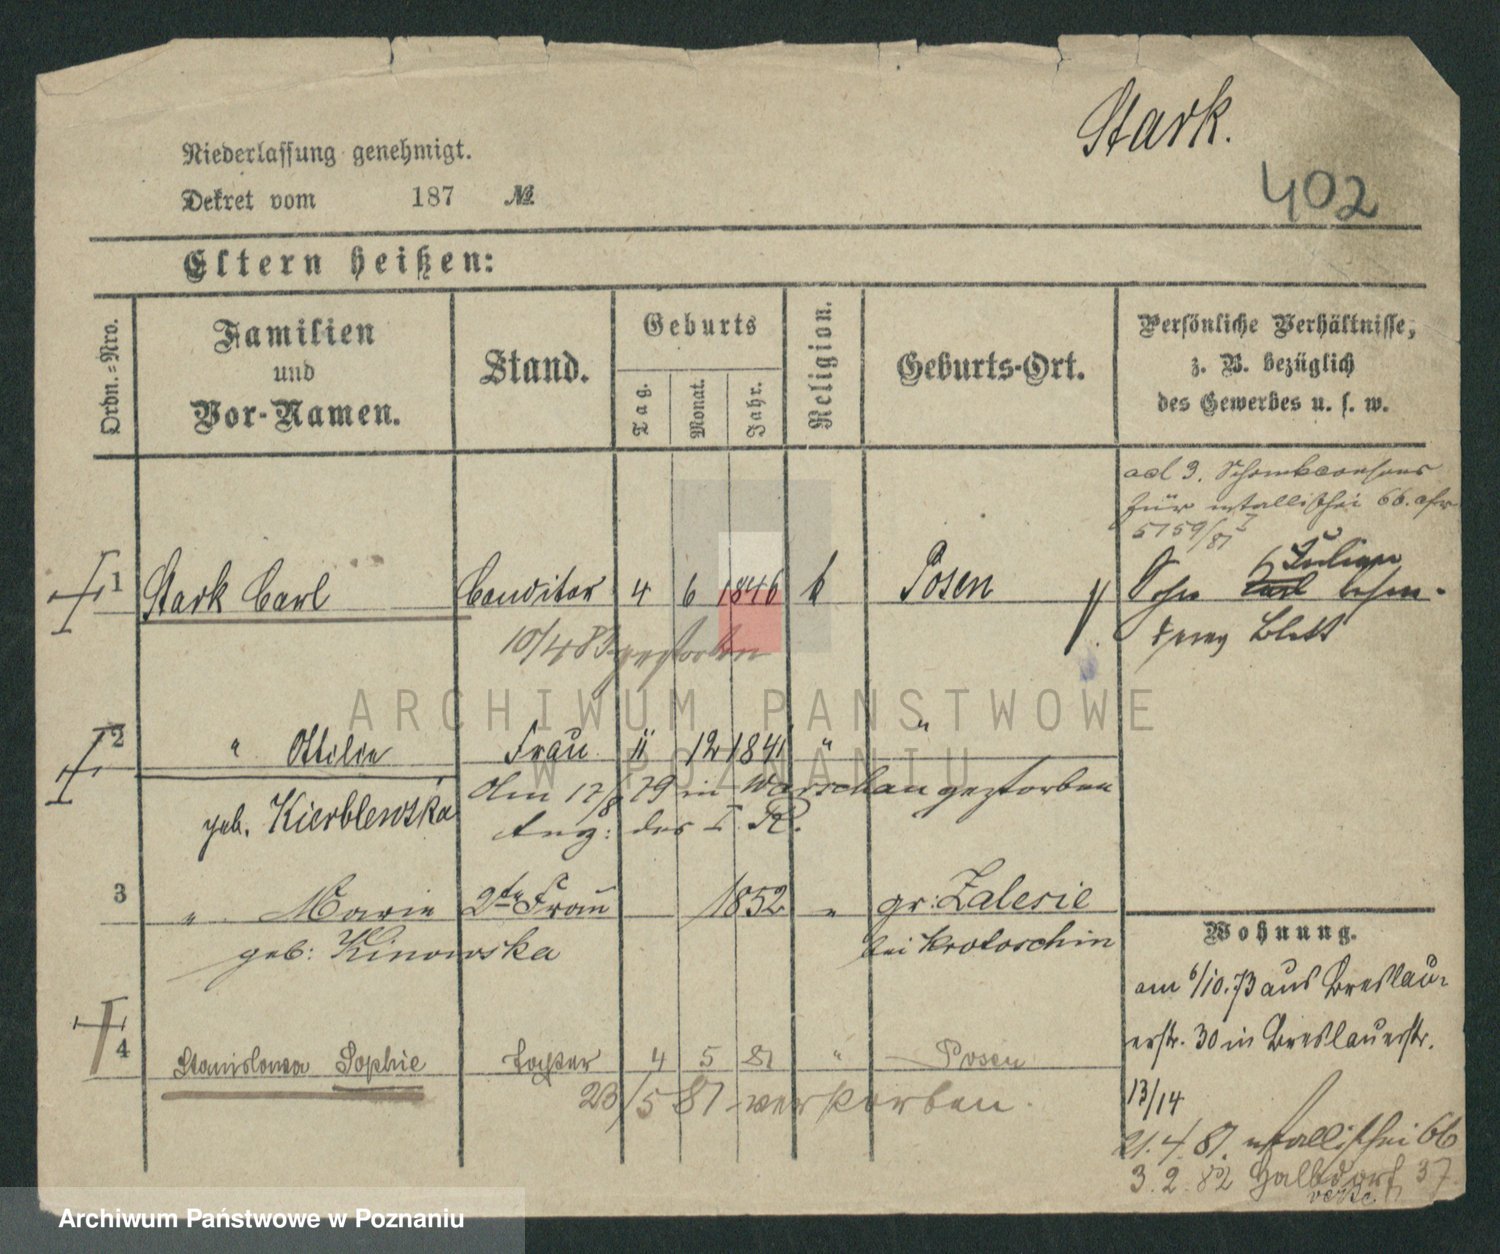 Stark.
402
Niederlassung genehmigt.
Dekret vom 187 №
Eltern heißen:
Ordn.=Nro.
Familien
und
Vor-Namen.
Stand.
Geburts
Tag.
Monat.
Jahr.
Religion.
Geburts-Ort.
Persönliche Verhältnisse,
z. B. bezüglich
des Gewerbes u. s. w.
ad 3. Schankconsens
für Wallischei 66.
5759/81
1 Stark Carl Conditor 4 6 1846 k Posen
Sohn Julian beson-
deres Blatt
10/4 83 gestorben
2 " Ottilie Frau 11 12 1841 " "
geb. Kierblewska
Am 17/8 79 in Warschau gestorben
Anz: des I. R.
3 " Marie 2te Frau 1852 " gr: Zalesie
geb: Kinowska bei Krotoschin
Wohnung.
am 6/10. 73 aus Breslau-
erstr. 30 in Breslauerstr.
13/14
21.4.81. Wallischei 66
3.2.82 Halbdorf 37
4 Stanislawa Sophie Tochter 4 5 81 " Posen
23/5 81 verstorben.
ARCHIWUM PAŃSTWOWE
W POZNANIU
Archiwum Państwowe w Poznaniu